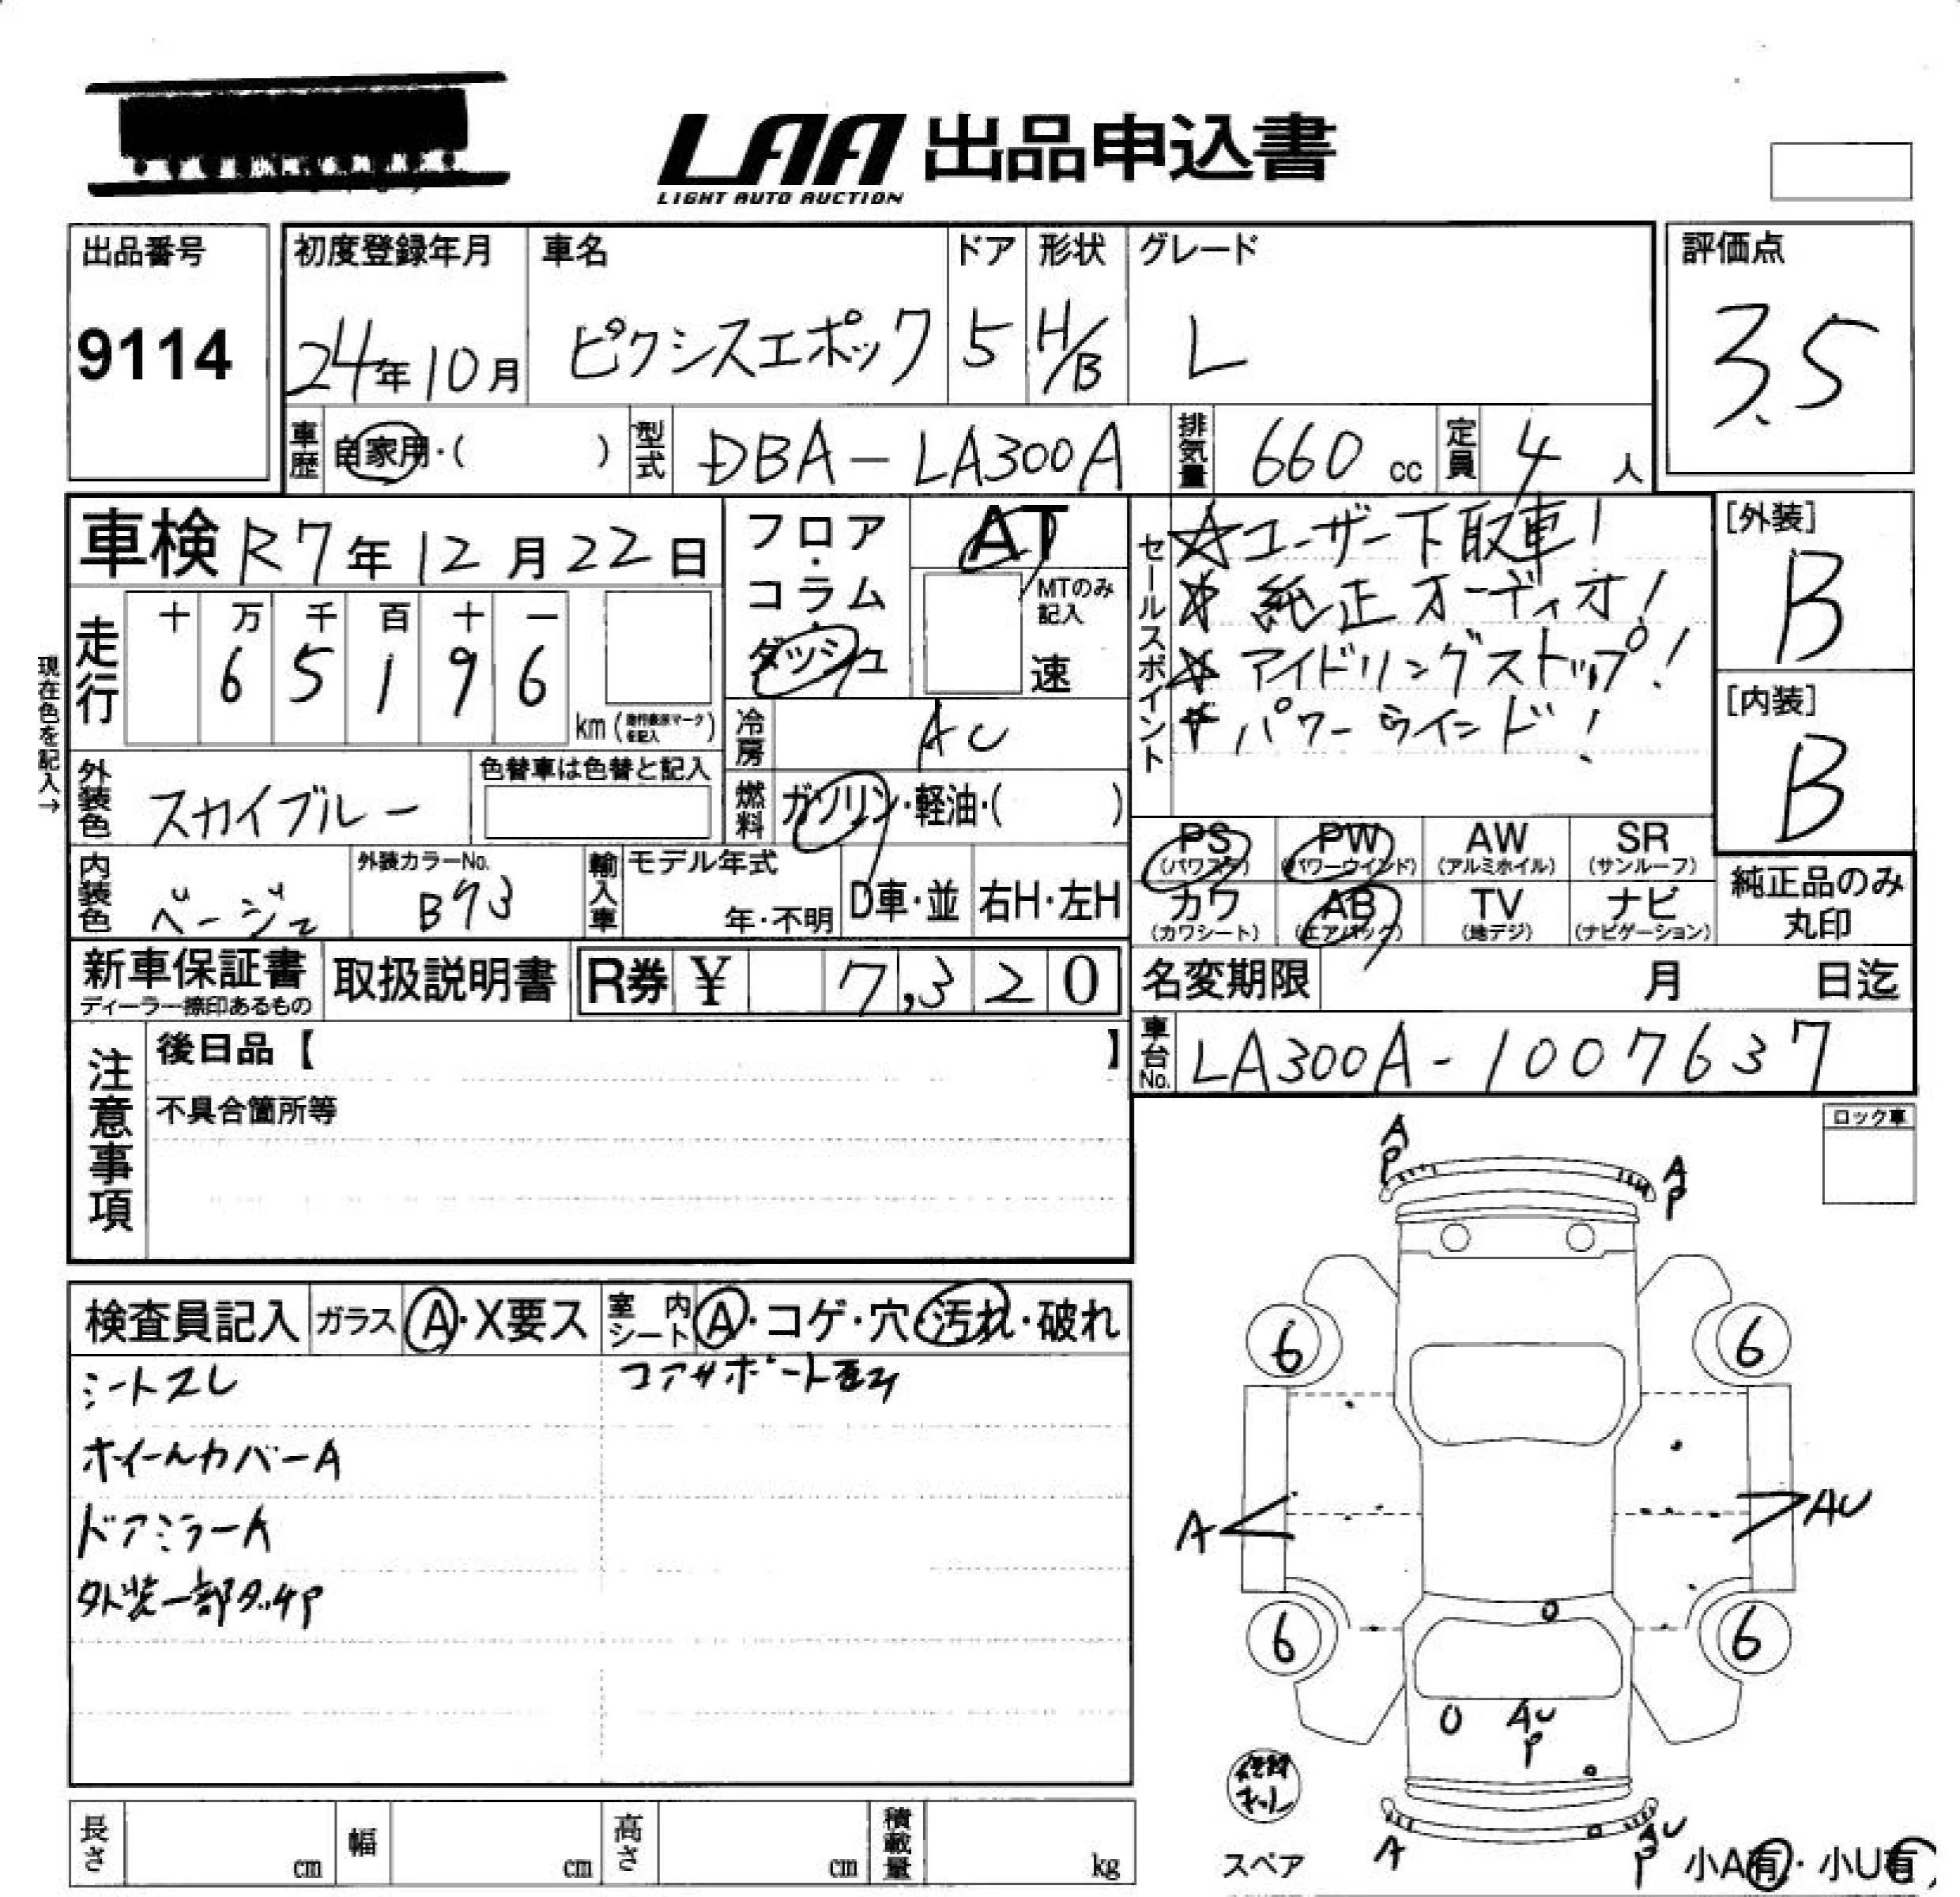 LAA 出品申込書
LIGHT AUTO AUCTION
出品番号
9114
初度登録年月
24年10月
車名
ピクシスエポック
ドア
5
形状
H/B
グレード
L
評価点
3.5
車歴 自家用・( )
型式 DBA-LA300A
排気量 660 cc
定員 4 人
車検 R7年12月22日
フロア・コラム・ダッシュ
AT
MTのみ記入
速
セールスポイント
☆ユーザー下取車!
☆純正オーディオ!
☆アイドリングストップ!
☆パワーウインド!
[外装]
B
[内装]
B
現在色を記入→
走行
十 万 千 百 十 一
6 5 1 9 6
km (走行表示マークを記入)
冷房 AC
外装色 スカイブルー
色替車は色替と記入
燃料 ガソリン・軽油・( )
PS (パワステ)
PW (パワーウインド)
AW (アルミホイル)
SR (サンルーフ)
カワ (カワシート)
AB (エアバック)
TV (地デジ)
ナビ (ナビゲーション)
純正品のみ丸印
内装色 ベージュ
外装カラーNo. B73
輸入車 モデル年式
年・不明
D車・並
右H・左H
新車保証書
ディーラー捺印あるもの
取扱説明書
R券 ¥ 7,320
名変期限 月 日迄
車台No. LA300A-1007637
注意事項
後日品【 】
不具合箇所等
ロック車
検査員記入
ガラス A・X要ス
室内シート A・コゲ・穴・汚れ・破れ
シートスレ
コアサポート
ホイールカバーA
ドアミラーA
外装一部タッチP
A
P
A
P
6
6
A
AU
6
6
U
AU
P
修理キット
スペア
A
AU
P
小A有・小U有
長さ cm
幅 cm
高さ cm
積載量 kg